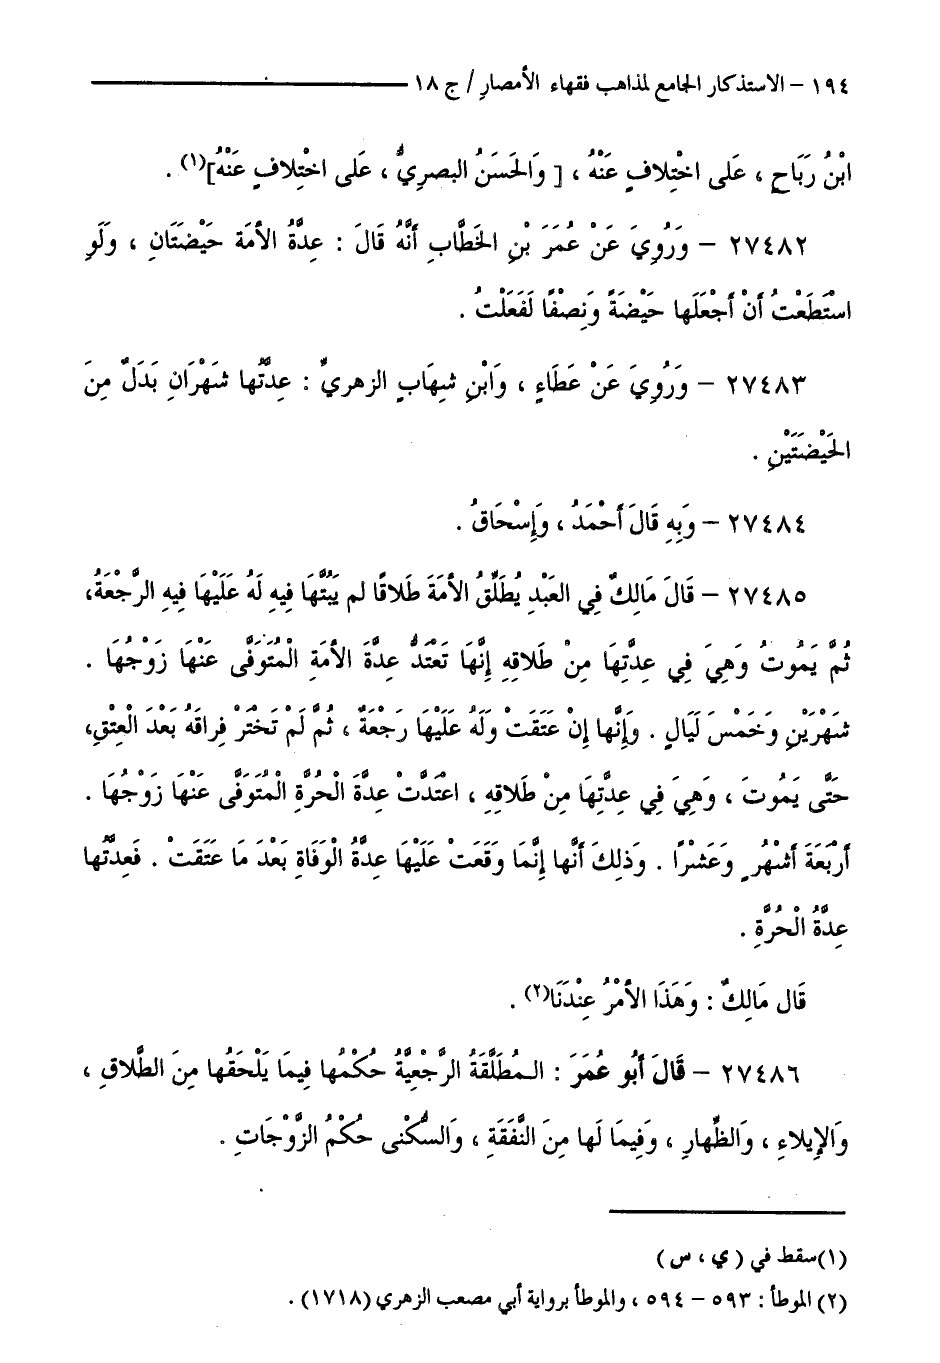 ١٩٤ – الاستذكار الجامع لمذاهب فقهاء الأمصار / ج ١٨
ابْنُ رَبَاحٍ ، عَلى اخْتِلافٍ عَنْهُ ، [ وَالحَسَنُ البصرِيُّ ، عَلى اخْتِلافٍ عَنْهُ](١) .
٢٧٤٨٢ – وَرُوِيَ عَنْ عُمَرَ بْنِ الخَطَّابِ أَنَّهُ قَالَ : عِدَّةُ الأَمَة حَيْضَتَانِ ، وَلَوِ
اسْتَطَعْتُ أَنْ أَجْعَلَها حَيْضَةً وَنِصْفًا لَفَعَلْتُ .
٢٧٤٨٣ – وَرُوِيَ عَنْ عَطَاءٍ ، وَابْنِ شِهَابٍ الزهريِّ : عِدَّتُها شَهْرَانِ بَدَلٌ مِنَ
الحَيْضَتَيْنِ .
٢٧٤٨٤ – وَبِهِ قَالَ أَحْمَدُ ، وَإِسْحَاقُ .
٢٧٤٨٥ – قَالَ مَالِكٌ فِي العَبْدِ يُطَلِّقُ الأَمَةَ طَلَاقًا لم يَبُتَّهَا فِيهِ لَهُ عَلَيْهَا فِيهِ الرَّجْعَةُ،
ثُمَّ يَمُوتُ وَهِيَ فِي عِدَّتِهَا مِنْ طَلاقِهِ إِنَّهَا تَعْتَدُّ عِدَّةَ الأمَةِ الْمُتَوَفَّى عَنْهَا زَوْجُهَا .
شَهْرَيْنِ وَخَمْسَ لَيَالٍ . وَإِنَّها إِنْ عَتَقَتْ وَلَهُ عَلَيْهَا رَجْعَةٌ ، ثُمَّ لَمْ تَخْتَرْ فِراقَهُ بَعْدَ الْعِتْقِ،
حَتَّى يَمُوتَ ، وَهِيَ فِي عِدَّتِهَا مِنْ طَلَاقِهِ ، اعْتَدَّتْ عِدَّةَ الْحُرَّةِ الْمُتَوَفَّى عَنْهَا زَوْجُهَا .
أَرْبَعَةَ أَشْهُرٍ وَعَشْرًا . وَذلِكَ أَنَّها إِنَّمَا وَقَعَتْ عَلَيْهَا عِدَّةُ الْوَفَاةِ بَعْدَ مَا عَتَقَتْ . فَعِدَّتُها
عِدَّةُ الْحُرَّةِ .
قَال مَالِكٌ : وَهَذَا الأمْرُ عِنْدَنَا(٢) .
٢٧٤٨٦ – قَالَ أَبُو عُمَرَ : الـمُطَلَّقَةُ الرَّجْعِيَّةُ حُكْمُها فِيمَا يَلْحَقُها مِنَ الطَّلاقِ ،
وَالإِيلاءِ ، وَالظِّهارِ ، وَفِيمَا لَها مِنَ النَّفَقَةِ ، وَالسُّكْنى حُكْمُ الزَّوْجَاتِ .
(١)سقط في ( ي ، س )
(٢) الموطأ : ٥٩٣ – ٥٩٤ ، والموطأ برواية أبي مصعب الزهري (١٧١٨) .